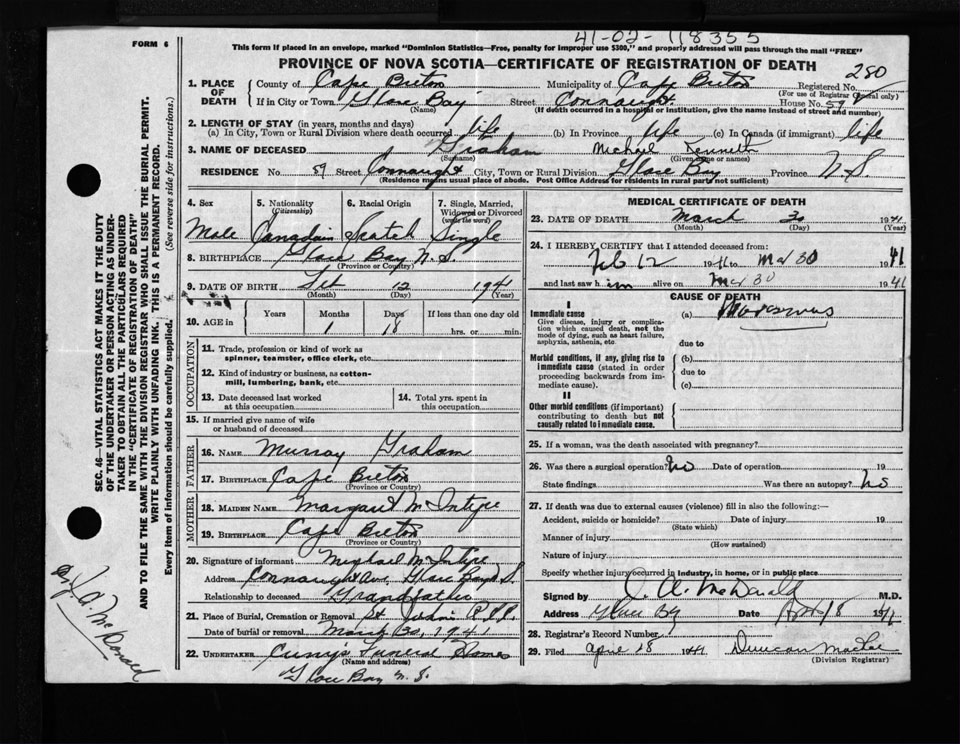 41-02-118355
FORM 6
This form if placed in an envelope, marked "Dominion Statistics—Free, penalty for improper use $300," and properly addressed will pass through the mail "FREE"
PROVINCE OF NOVA SCOTIA—CERTIFICATE OF REGISTRATION OF DEATH
280
1. PLACE OF DEATH
County of Cape Breton Municipality of Cape Breton Registered No.
(For use of Registrar General only)
If in City or Town Glace Bay Street Connaught House No. 59
(Name) (If death occurred in a hospital or institution, give the name instead of street and number)
2. LENGTH OF STAY (in years, months and days)
(a) In City, Town or Rural Division where death occurred life (b) In Province life (c) In Canada (if immigrant) life
3. NAME OF DECEASED Graham Michael Kenneth
(Surname) (Given name or names)
RESIDENCE No. 59 Street Connaught City, Town or Rural Division Glace Bay Province N S
(Residence means usual place of abode. Post Office Address for residents in rural parts not sufficient)
4. Sex 5. Nationality (Citizenship) 6. Racial Origin 7. Single, Married, Widowed or Divorced (write the word)
Male Canadain Scotch Single
8. BIRTHPLACE Glace Bay N. S.
(Province or Country)
9. DATE OF BIRTH 12 1941
(Month) (Day) (Year)
10. AGE in Years Months Days If less than one day old
1 18 hrs. or min.
OCCUPATION
11. Trade, profession or kind of work as spinner, teamster, office clerk, etc.
12. Kind of industry or business, as cotton-mill, lumbering, bank, etc.
13. Date deceased last worked at this occupation 14. Total yrs. spent in this occupation
15. If married give name of wife or husband of deceased
FATHER
16. NAME Murray Graham
17. BIRTHPLACE Cape Breton
(Province or Country)
MOTHER
18. MAIDEN NAME Margaret McIntyre
19. BIRTHPLACE Cape Breton
(Province or Country)
20. Signature of informant Michael McIntyre
Address Connaught Ave, Glace Bay N.S.
Relationship to deceased Grandfather
21. Place of Burial, Cremation or Removal St. John's
Date of burial or removal March 30, 1941
22. UNDERTAKER Curry's Funeral Home
(Name and address)
Glace Bay N. S.
MEDICAL CERTIFICATE OF DEATH
23. DATE OF DEATH March 30 1941
(Month) (Day) (Year)
24. I HEREBY CERTIFY that I attended deceased from:
Feb 12 1941 to Mar 30 1941
and last saw him alive on Mar 30 1941
CAUSE OF DEATH
I
Immediate cause
Give disease, injury or complication which caused death, not the mode of dying, such as heart failure, asphyxia, asthenia, etc.
(a) Marasmus
due to
Morbid conditions, if any, giving rise to immediate cause (stated in order proceeding backwards from immediate cause).
(b)
due to
(c)
II
Other morbid conditions (if important) contributing to death but not causally related to immediate cause.
25. If a woman, was the death associated with pregnancy?
26. Was there a surgical operation? No Date of operation 19
State findings Was there an autopsy? No
27. If death was due to external causes (violence) fill in also the following:—
Accident, suicide or homicide? Date of injury 19
(State which)
Manner of injury
(How sustained)
Nature of injury
Specify whether injury occurred in industry, in home, or in public place
Signed by J. A. McDonald M.D.
Address Glace Bay Date Apr 18 1941
28. Registrar's Record Number
29. Filed April 18 1941 Duncan
(Division Registrar)
SEC. 46—VITAL STATISTICS ACT MAKES IT THE DUTY
OF THE UNDERTAKER OR PERSON ACTING AS UNDERTAKER TO OBTAIN ALL THE PARTICULARS REQUIRED
IN THE "CERTIFICATE OF REGISTRATION OF DEATH"
AND TO FILE THE SAME WITH THE DIVISION REGISTRAR WHO SHALL ISSUE THE BURIAL PERMIT.
WRITE PLAINLY WITH UNFADING INK. THIS IS A PERMANENT RECORD.
Every item of information should be carefully supplied. (See reverse side for instructions.)
Dr. J. A. McDonald